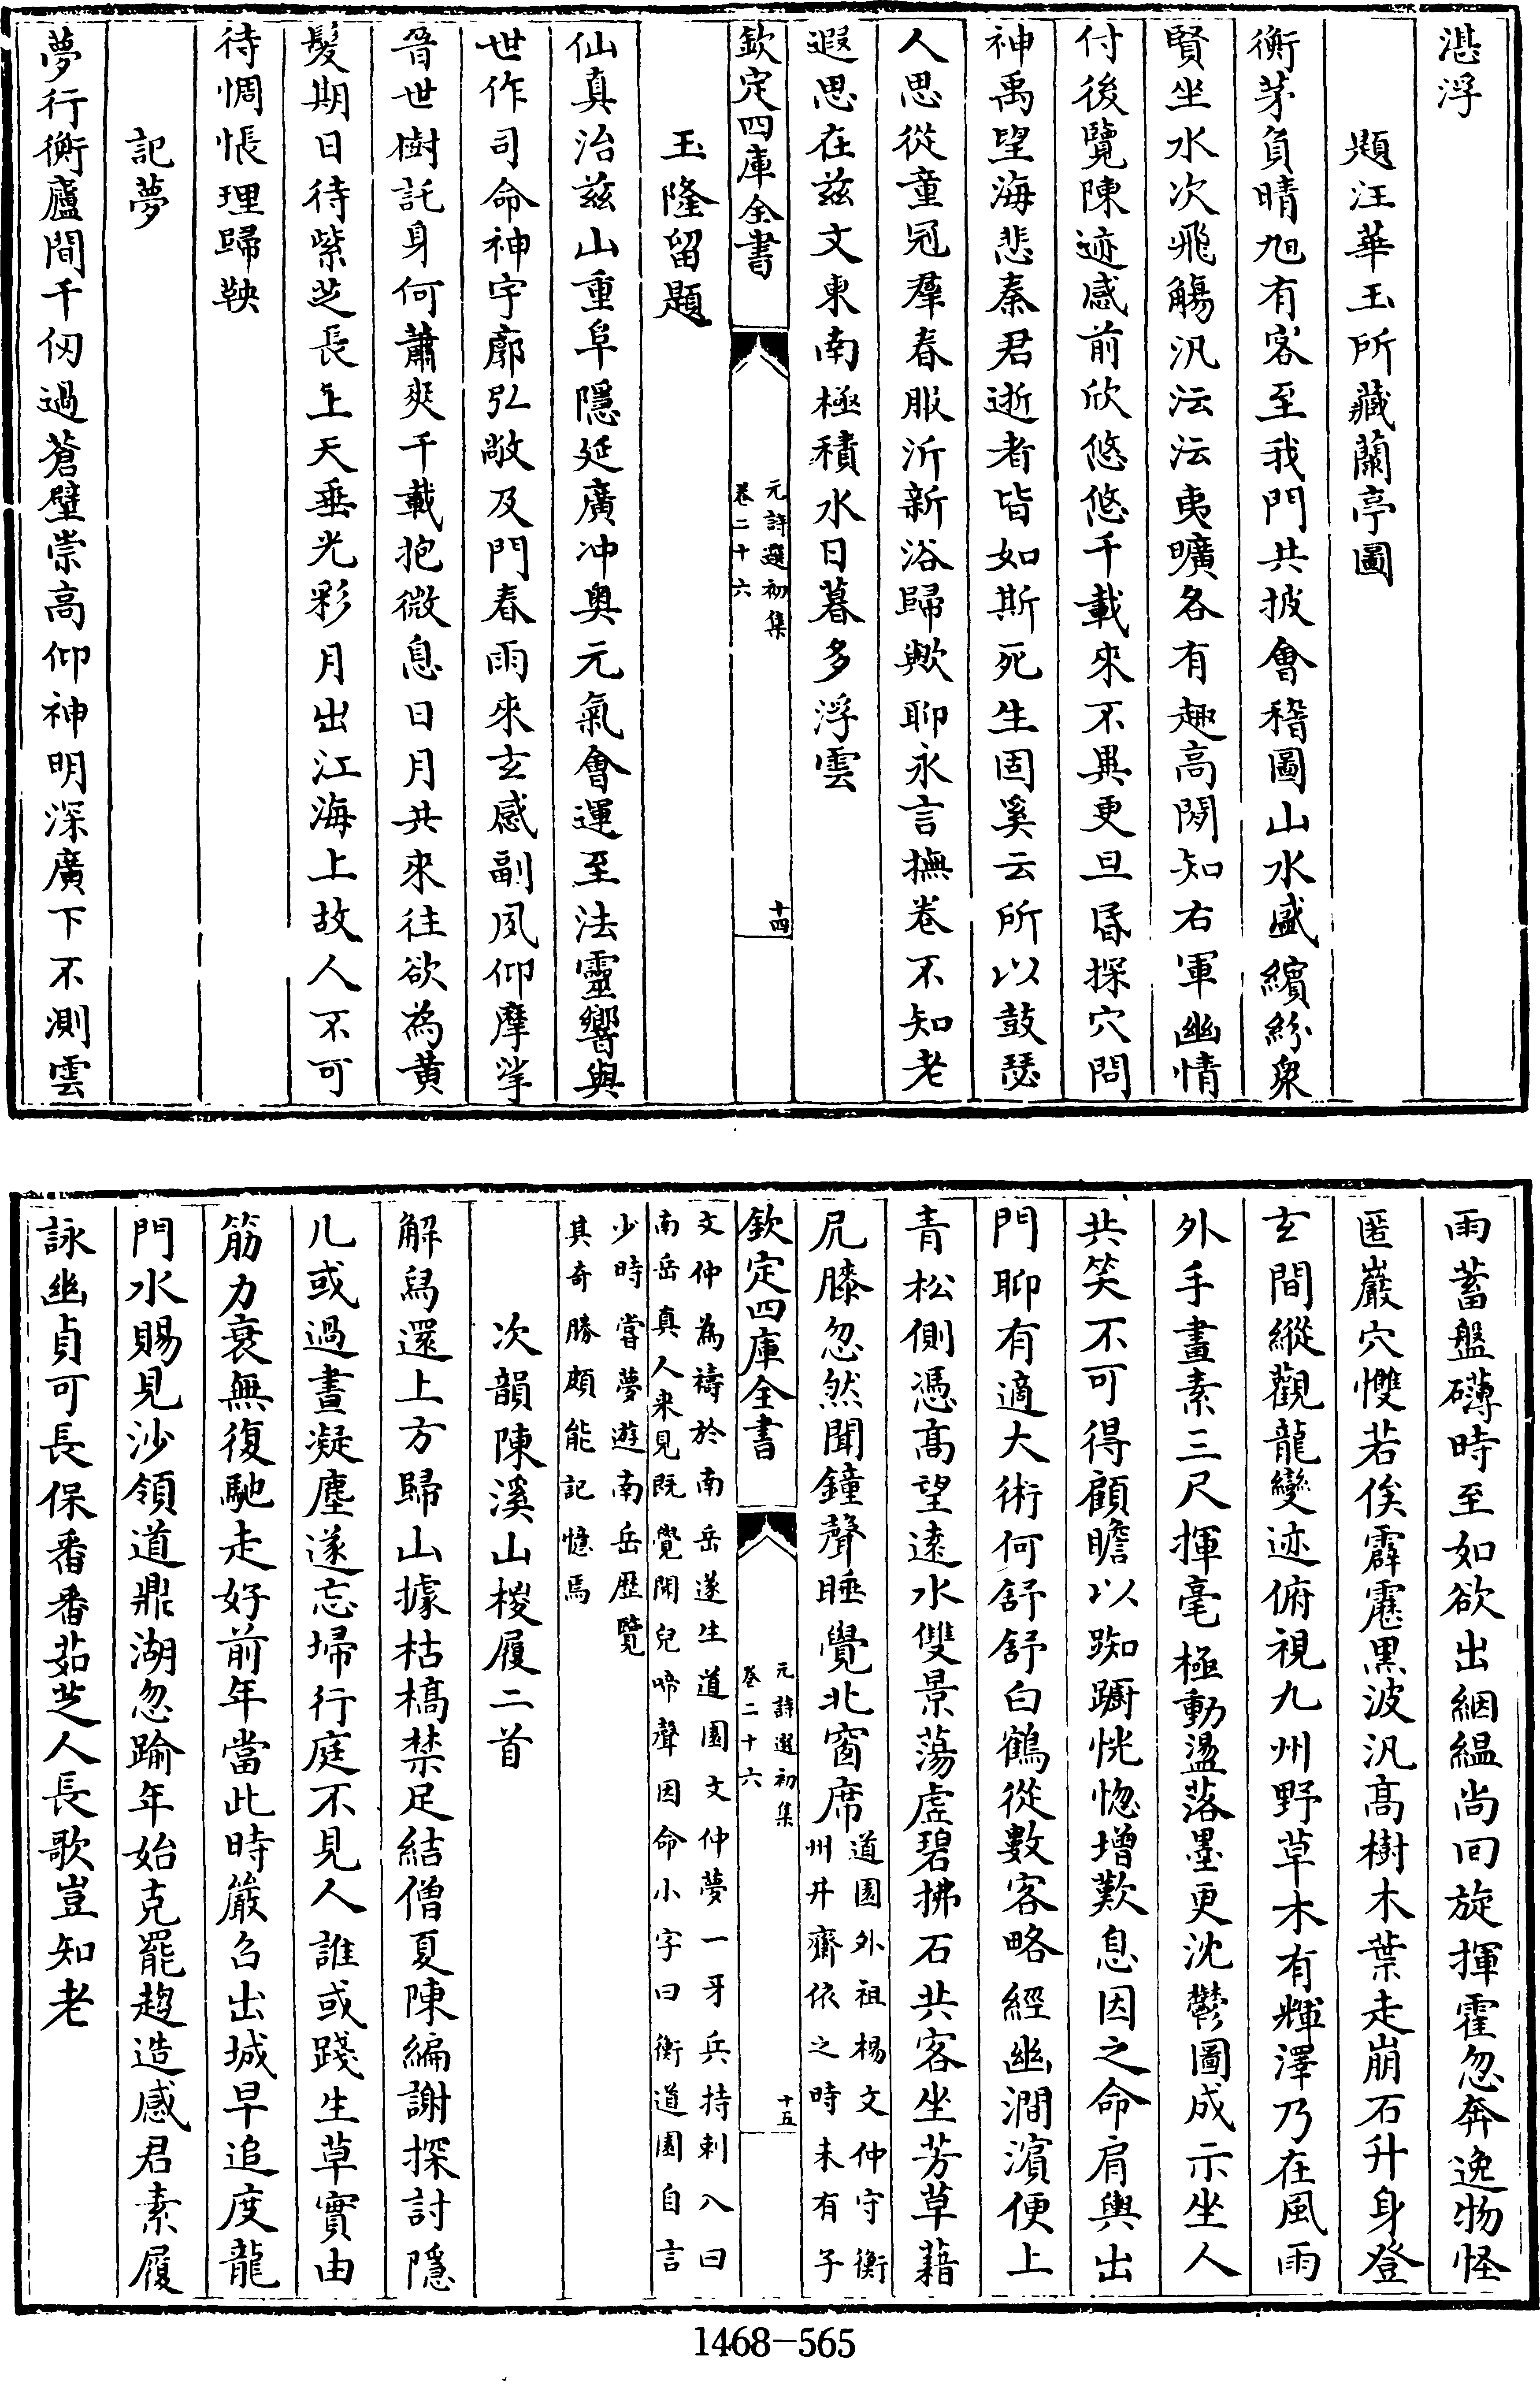 湛浮
題汪華玉所藏蘭亭圖
衡茅負晴旭有客至我門共披會稽圖山水盛繽紛衆
賢坐水次飛觴汎沄沄夷曠各有趣高閒知右軍幽情
付後覽陳迹感前欣悠悠千載來不異更旦昏探穴問
神禹望海悲秦君逝者皆如斯死生固奚云所以鼓瑟
人思從童冠羣春服沂新浴歸歟聊永言撫卷不知老
遐思在兹文東南極積水日暮多浮雲
欽定四庫全書
元詩選初集
卷二十六
十四
玉隆留題
仙真治兹山重阜隱延廣冲奥元氣會運至法靈響與
世作司命神宇廓弘敞及門春雨來玄感副夙仰摩挲
晉世樹託身何蕭爽千載抱微息日月共來往欲為黄
髮期日待紫芝長上天垂光彩月出江海上故人不可
待惆悵理歸鞅
記夢
夢行衡廬間千仞過蒼壁崇高仰神明深廣下不測雲
雨蓄盤礴時至如欲出絪緼尚回旋揮霍忽奔逸物怪
匿巖穴慴若俟霹靂黒波汎髙樹木葉走崩石升身登
玄間縱觀龍變迹俯視九州野草木有輝澤乃在風雨
外手畫素三尺揮毫極動盪落墨更沈鬱圖成示坐人
共笑不可得顧瞻以踟蹰恍惚增歎息因之命肩輿出
門聊有適大術何舒舒白鶴從數客略經幽澗濱便上
青松側憑髙望遠水雙景蕩虛碧拂石共客坐芳草藉
尻膝忽然聞鐘聲睡覺北窗席
道園外祖楊文仲守衡
州井齋依之時未有子
欽定四庫全書
元詩選初集
卷二十六
十五
文仲為禱於南岳遂生道園文仲夢一牙兵持刺入曰
南岳真人來見既覺聞兒啼聲因命小字曰衡道園自言
少時嘗夢遊南岳歷覽
其奇勝頗能記憶焉
次韻陳溪山椶履二首
解舄還上方歸山據枯槁禁足結僧夏陳編謝探討隱
几或過晝凝塵遂忘埽行庭不見人誰或踐生草實由
筋力衰無復馳走好前年當此時嚴召出城早追度龍
門水賜見沙領道鼎湖忽踰年始克罷趨造感君素履
詠幽貞可長保番番茹芝人長歌豈知老
1468-565